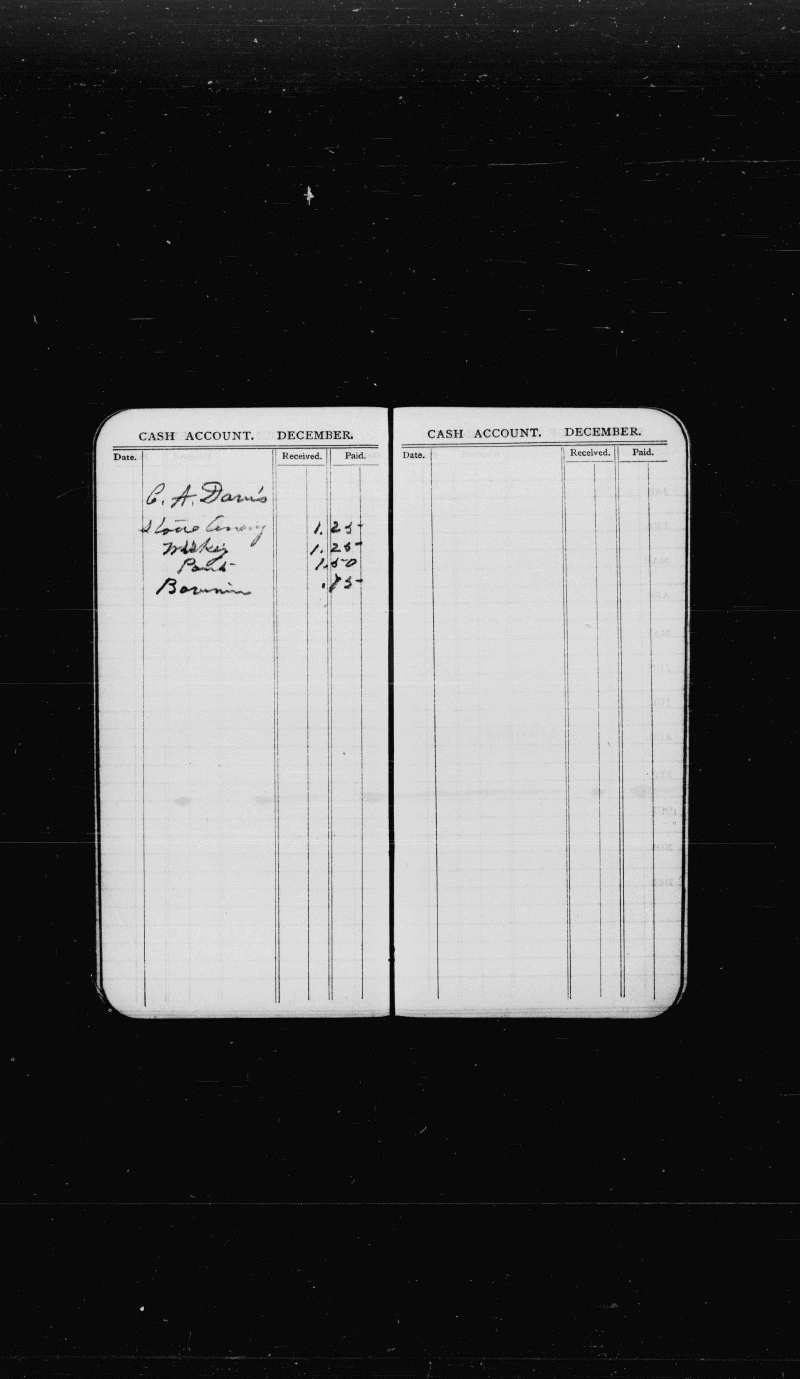 CASH ACCOUNT. DECEMBER.
Date. Received. Paid.
C. A. Davis
1.25
Wiskey 1.25
1.50
.75
CASH ACCOUNT. DECEMBER.
Date. Received. Paid.